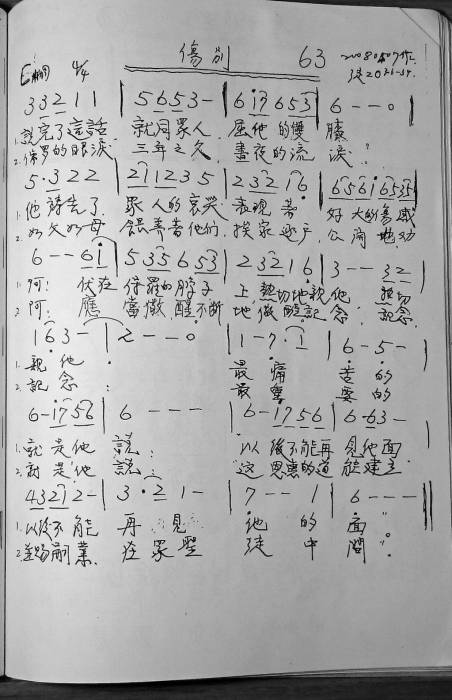 傷別 63 20080507作
E調 4/4 徒20:31-37
3 3 2 1 1 | 5 6 5 3 - | 6 1 7 6 5 3 | 6 - - 0
1. 說完了這話 就同眾人 屈他的 膝
2. 保罗的眼淚 三年之久 晝夜的流 淚
5 · 3 2 2 | 2 1 1 2 3 5 | 2 3 2 1 6 | 6 5 6 1 6 5 3 5 |
1. 他禱告了 眾人的哀哭 表現著 好大的傷感
2. 如父如母 餵養著他們, 挨家逐戶 公開地劝
6 - - 6 1 | 5 3 5 6 5 3 | 2 3 2 1 6 | 3 - - 3 2 |
1. 阿: 伏在 保羅的脖子 上, 熱切地親他 熱切
2. 阿: 應 當儆醒不断 地, 儆醒記念, 記念
1 6 3 - | 2 - - 0 | 1 - 7 · 1 | 6 - 5 - |
1. 親他 最痛 苦的
2. 記念: 最重 要的
6 - 1 7 5 6 | 6 - - - | 6 - 1 7 5 6 | 6 - 6 3 - |
1. 就是他 說: 以後不能再 見他面
2. 就是他 說: 这恩惠的道 能建立
4 3 2 1 2 - | 3 · 2 1 - | 7 - - 1 | 6 - - - ‖
1. 以後不能 再見 他的 面。
2. 並賜嗣業 在眾聖 徒中 間。